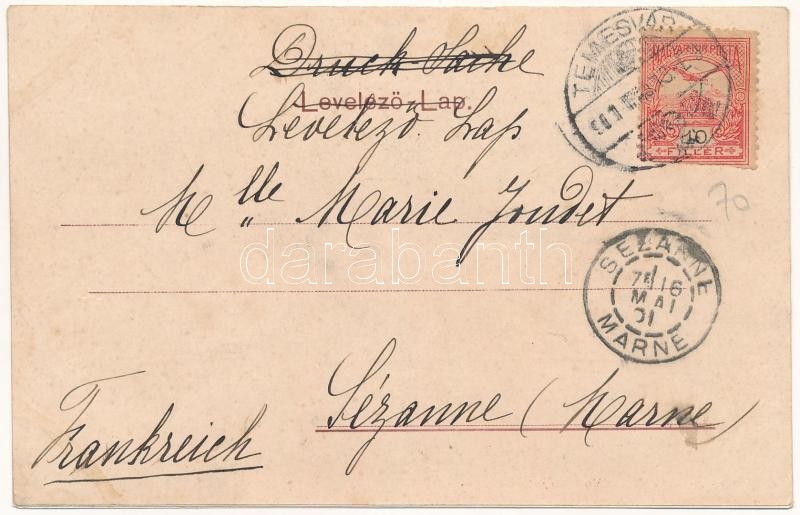 Druck-Sache
Levelező-Lap.
Levelező Lap
Mlle Marie Joudet
Sézanne (Marne)
Frankreich
TEMESVÁR
MAGYAR KIR. POSTA
10
FILLÉR
70
SÉZANNE
16
MAI
01
MARNE
darabanth